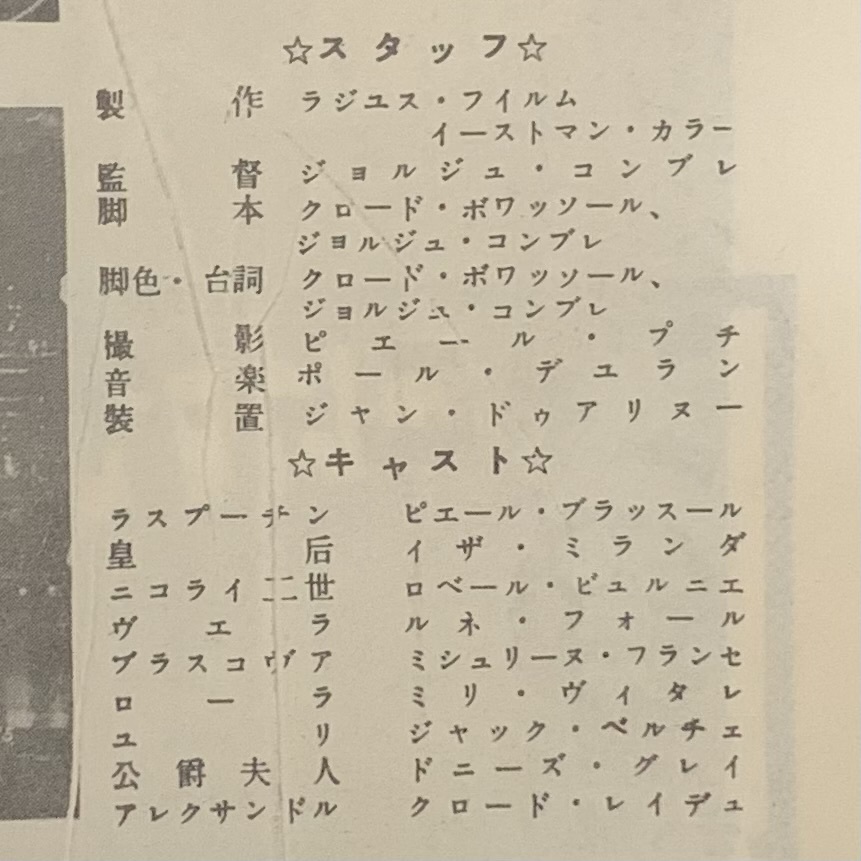 ☆スタッフ☆
製作 ラジユス・フイルム
イーストマン・カラー
監督 ジョルジュ・コンブレ
脚本 クロード・ボワッソール、
ジョルジュ・コンブレ
脚色・台詞 クロード・ボワッソール、
ジョルジュ・コンブレ
撮影 ピエール・プチ
音楽 ポール・デユラン
装置 ジャン・ドゥアリヌー
☆キャスト☆
ラスプーチン ピエール・ブラッスール
皇后 イザ・ミランダ
ニコライ二世 ロベール・ビュルニエ
ヴエラ ルネ・フォール
プラスコヴア ミシュリーヌ・フランセ
ローラ ミリ・ヴィタレ
ユリ ジャック・ベルチェ
公爵夫人 ドニーズ・グレイ
アレクサンドル クロード・レイデュ